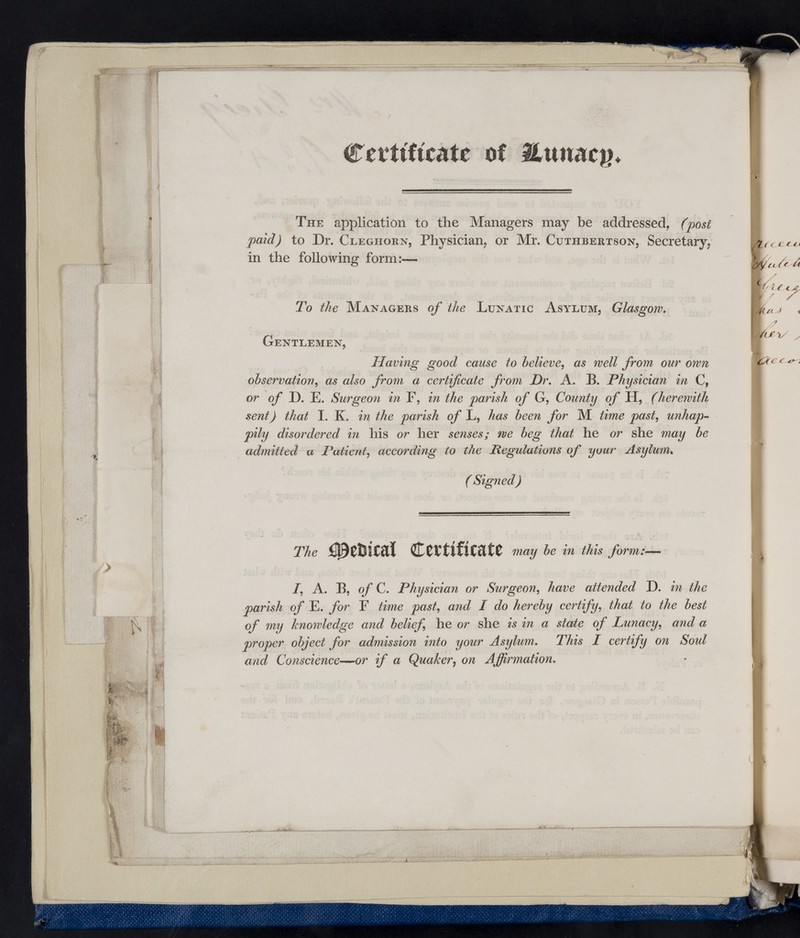 Certificate of Lunacy.
THE application to the Managers may be addressed, (post
paid) to Dr. CLEGHORN, Physician, or Mr. CUTHBERTSON, Secretary,
in the following form:—
To the MANAGERS of the LUNATIC ASYLUM, Glasgow.
GENTLEMEN,
Having good cause to believe, as well from our own
observation, as also from a certificate from Dr. A. B. Physician in C,
or of D. E. Surgeon in F, in the parish of G, County of H, (herewith
sent) that I. K. in the parish of L, has been for M time past, unhap-
pily disordered in his or her senses; we beg that he or she may be
admitted a Patient, according to the Regulations of your Asylum.
(Signed)
The Medical Certificate may be in this form:—
I, A. B, of C. Physician or Surgeon, have attended D. in the
parish of E. for F time past, and I do hereby certify, that to the best
of my knowledge and belief, he or she is in a state of Lunacy, and a
proper object for admission into your Asylum. This I certify on Soul
and Conscience—or if a Quaker, on Affirmation.
has
her